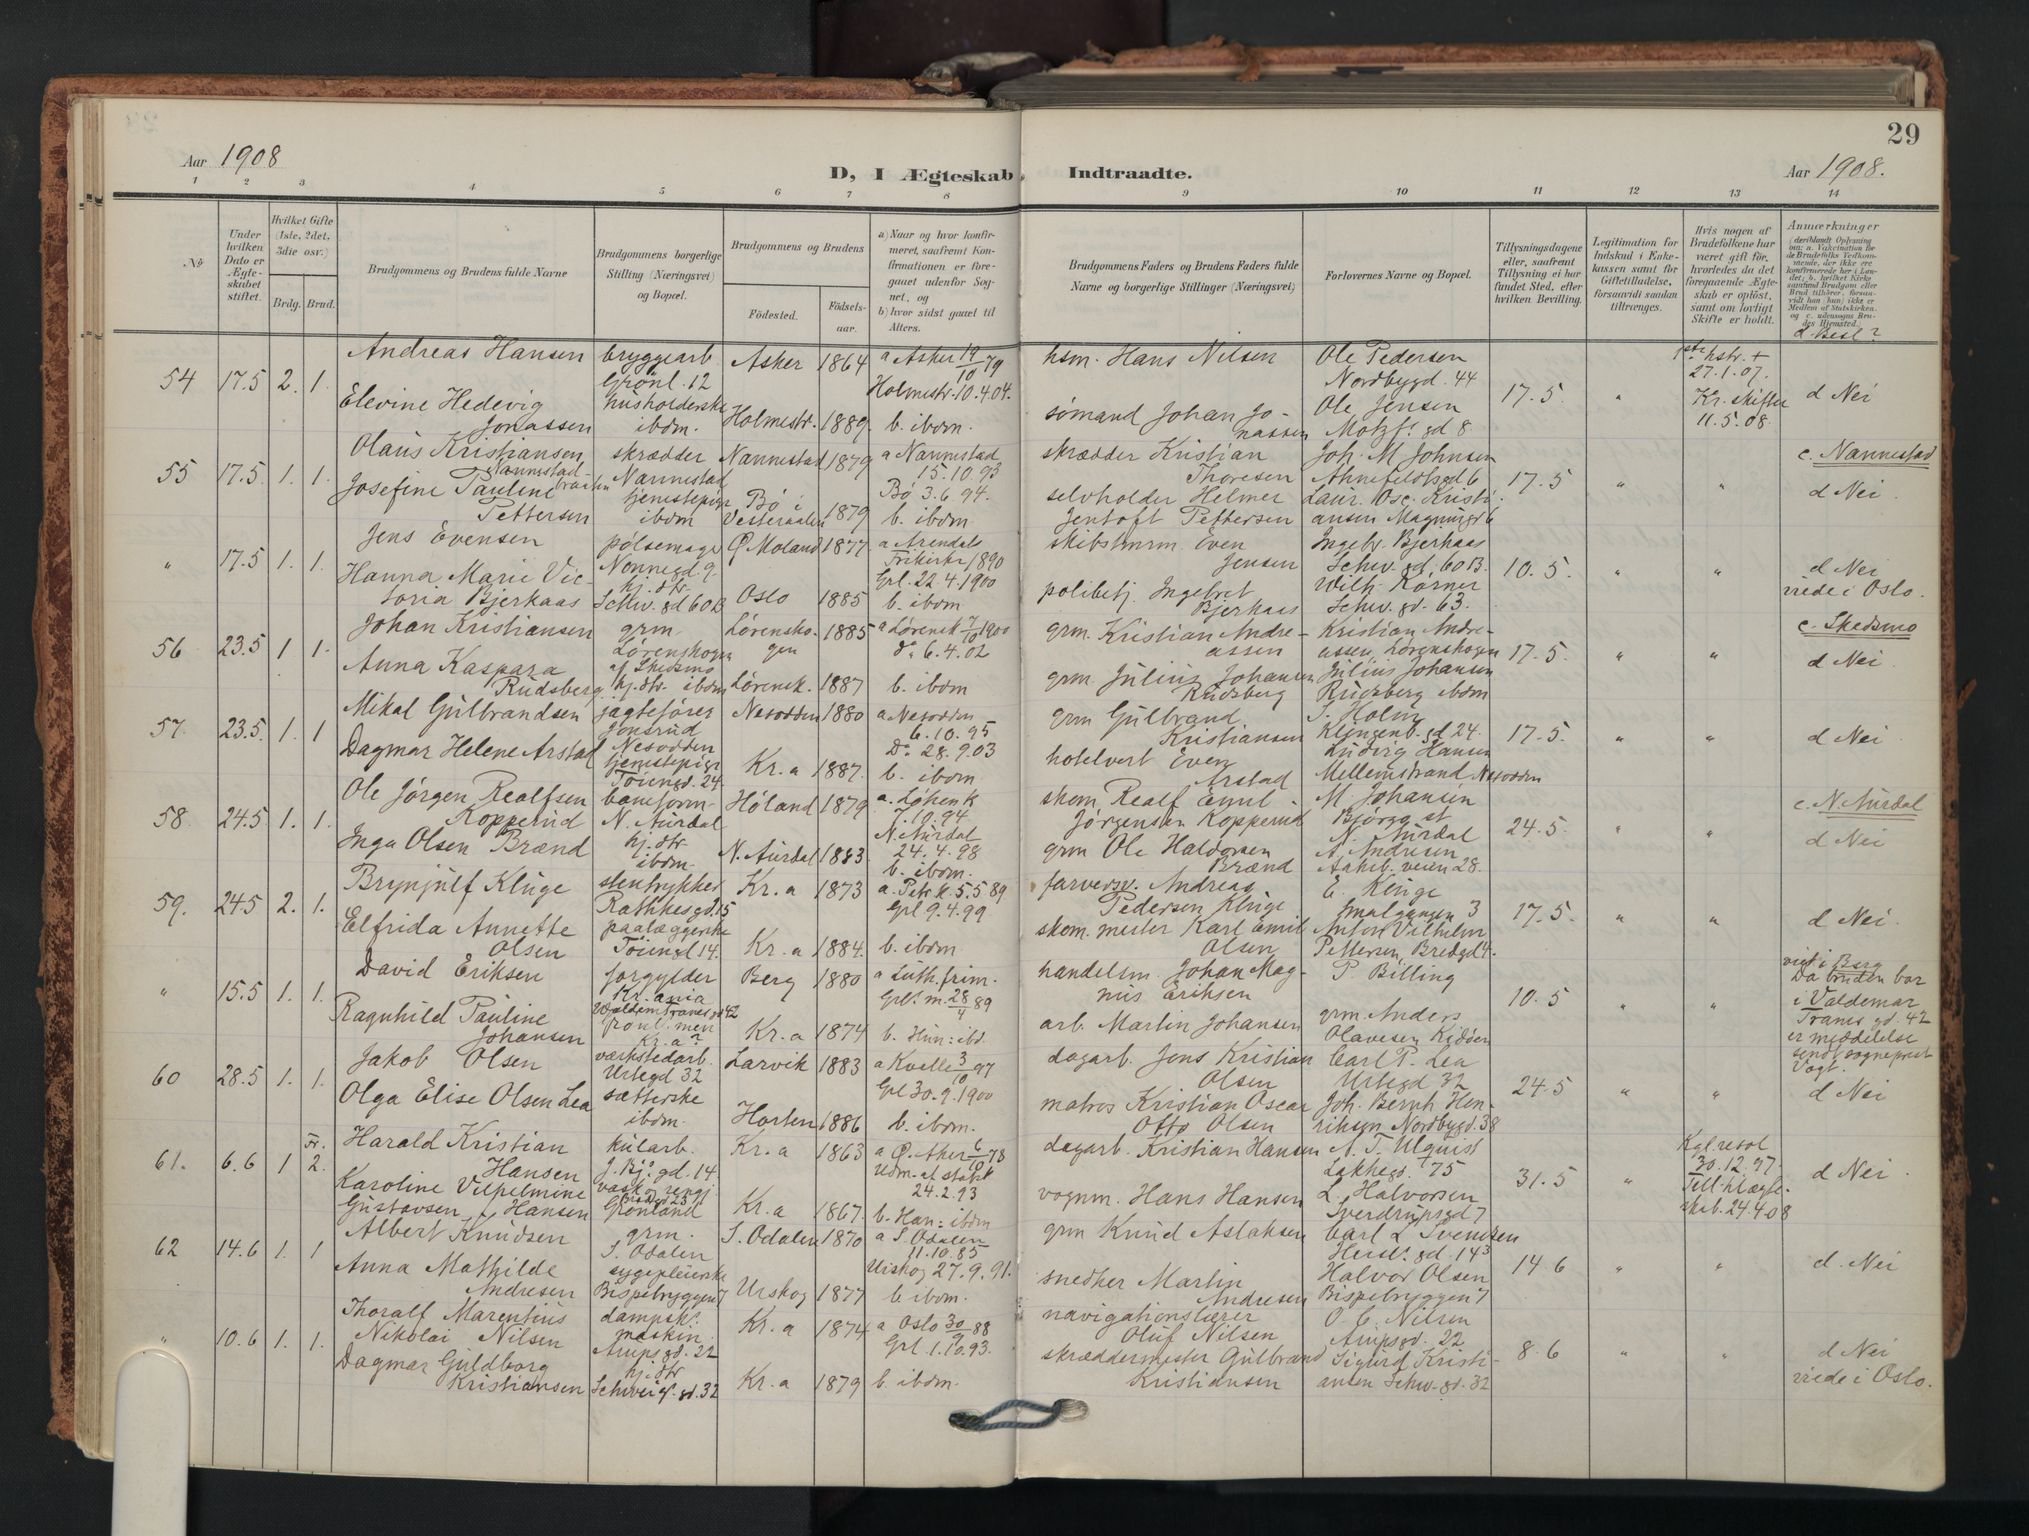 29
Aar 1908
D, I Ægteskab Indtraadte.
Aar 1908.
1 2 3 4 5 6 7 8 9 10 11 12 13 14
No
Under hvilken Dato er Ægteskabet stiftet.
Hvilket Gifte (1ste, 2det, 3die osv.)
Brdg. Brud.
Brudgommens og Brudens fulde Navne
Brudgommens borgerlige Stilling (Næringsvei) og Bopæl.
Brudgommens og Brudens
Fødested.
Fødselsaar.
a) Naar og hvor konfirmeret, saafremt Konfirmationen er foregaaet udenfor Sognet, og
b) hvor sidst gaaet til Alters.
Brudgommens Faders og Brudens Faders fulde Navne og borgerlige Stillinger (Næringsvei)
Forlovernes Navne og Bopæl.
Tillysningsdagene eller, saafremt Tillysning ei har fundet Sted, efter hvilken Bevilling.
Legitimation for Indskud i Enkekassen samt for Giftetilladelse, forsaavidt saadan tiltrænges.
Hvis nogen af Brudefolkene har været gift før, hvorledes da det foregaaende Ægteskab er opløst, samt om lovligt Skifte er holdt.
Anmærkninger
d Besl?
54 17.5 2. 1.
Andreas Hansen bryggearb. Grönl. 12 Asker 1864 a Asker 19/10 79 Holmestr. 10.4.04.
hsm. Hans Nilsen Ole Pedersen Nordbygd. 44 17.5. " 1ste hstr. + 27.1.07. Kr. skifter 11.5.08. d Nei
Elevine Hedevig Jonassen husholderske ibdm. Holmestr. 1889. b. ibdm.
sømand Johan Jonassen Ole Jensen Motzf. gd 8
55 17.5. 1. 1.
Olaus Kristiansen Nannestadbraaten skrædder Nannestad Nannestad 1879 a Nannestad 15.10.93
skrædder Kristian Thoresen Joh. M Johnsen Ahnefeldtsgd 6 17.5 " " c. Nannestad
Josefine Pauline Pettersen tjenestepige ibdm Bö i Vesteraalen 1879 Bö 3.6.94. b. ibdm
selvholder Helmer Jentoft Pettersen Laur. Osc. Kristiansen Magnusgd 6 d Nei.
" 17.5 1. 1.
Jens Evensen pölsemager Nonnegd. 9 Ö Moland 1877 a Arendals Frikirke 1890 Grl. 22.4.1900
skibstmrm. Even Jensen Ingebr. Bjerkaas Schw. gd. 60 B. 10.5. " " d Nei
Hanna Marie Victoria Bjerkaas hj. dtr. Schw. gd 60 B Oslo 1885 b. ibdm
politibetj. Ingebret Bjerkaas Wilh. Körner Schw. gd. 63. viede i Oslo.
56 23.5 1 1.
Johan Kristiansen grm. Lörenskogen af Skedsmo Lörenskogen 1885 a Lörensk 7/10 1900 do 6.4.02
grm. Kristian Andreassen Kristian Andreassen, Lörenskogen 17.5. " " c. Skedsmo
Anna Kaspara Rudsberg hj. dtr. ibdm Lörensk. 1887 b. ibdm
grm. Julius Johansen Rudsberg Julius Johansen Rudsberg ibdm d Nei.
57. 23.5. 1. 1
Mikal Gulbrandsen jagtefører Jonsrud Nesodden Nesodden 1880 a Nesodden 6.10.95 Do 28.9.03
grm Gulbrand Kristiansen J. Holm Klingenb. gd 24. 17.5. " " d Nei
Dagmar Helene Arstad tjenestepige Töiengd. 24 Kr.a 1887. b. ibdm
hotelvert Even Arstad Ludvig Hansen Mellemstrand Nesodden
58. 24.5 1. 1.
Ole Jörgen Realfsen Kopperud baneform. N. Aurdal Höland 1879 a. Löken k 7.10.94 N. Aurdal 24.4.98
skom. Realf Emil Jörgensen Kopperud M. Johansen Björgg st N. Aurdal 24.5. " " c. N. Aurdal
Inga Olsen Brænd hj. dtr. ibdm. N. Aurdal 1883. b. ibdm.
grm Ole Haldorsen Brænd A. Andresen Aakeb. veien 28. d Nei
59. 24.5 2. 1.
Brynjulf Kluge stentrykker Rathkesgd. 15 Kr.a 1873 a. Petr k. 5.5.89 Grl 9.4.99
farversv. Andreas Pedersen Kluge E. Kluge Smalgangen 3 17.5. " " d Nei.
Elfrida Annette Olsen paalæggerske Töiengd 14. Kr.a 1884. b. ibdm.
skom. mester Karl Emil Olsen Anton Vilhelm Pettersen, Bredgd 4.
" 15.5 1. 1.
David Eriksen forgylder Kr.ania Valdem Tranesgd 42 Berg 1880 a Luth. frim. Grl. m. 28/4 89
handelsm. Johan Magnus Eriksen P. Billing 10.5 " "
Ragnhild Pauline Johansen Kr.a? Kr.a 1874 b. Hun: ibd.
arb. Martin Johansen grm. Anders Olavesen
vigt i Berg Da bruden bor i Valdemar Tranes gd. 42 er meddelelse sendt sogneprest Vogt.
60 28.5 1. 1.
Jakob Olsen værkstedarb. Urtegd 32 Larvik 1883 a Kvelle 3/10 97 Grl 30.9.1900
dagarb. Jens Kristian Olsen Carl P. Lea Urtegd 32 24.5 " " d Nei
Olga Elise Olsen Lea sætterske ibdm. Horten 1886 b. ibdm.
matros Kristian Oscar Otto Olsen Joh. Bernh Henriksen Nordbygd. 38
61. 6.6 1 Fr. 2.
Harald Kristian Hansen kularb. J. Bj. gd. 14 Kr.a 1863 a Ö. Aker 6/10 78 Udm. at stakl 24.2.93
dagarb. Kristian Hansen A. T. Ulquist Lakkegd. 75 31.5 " Kgl. resol 30.12.97. d Nei.
Karoline Vilhelmine Gustavsen f. Hansen Grönland Kr.a 1867. b. Han: ibdm
vognm. Hans Hansen L. Halvorsen Sverdrupsgd 7 24.4.08
62 14.6 1. 1
Albert Knudsen grm. S. Odalen S. Odalen 1870 a S. Odalen 11.10.85 Urskog 27.9.91.
grm Knud Aslaksen Carl L Svendsen Hersl. gd. 14³ 14.6 " " d. Nei
Anna Mathilde Andresen sygepleierske Bispebryggen 7 Urskog 1877 b ibdm.
snedker Martin Andresen Halvor Olsen Bispebryggen 7
" 10.6 1. 1.
Thoralf Marentius Nikolai Nilsen dampsk. maskin. Arupsgd. 22 Kr.a 1874 a Oslo 30/9 88 Grl. 1.10.93.
navigationslærer Oluf Nilsen O. C. Nilsen Arupsgd. 22 8.6 " " d Nei
Dagmar Guldborg Kristiansen hj. dtr Schweig. gd. 32 Kr.a 1879 b. ibdm.
skræddermester Gulbrand Kristiansen Sigurd Kristiansen Schw. gd. 32 viede i Oslo.